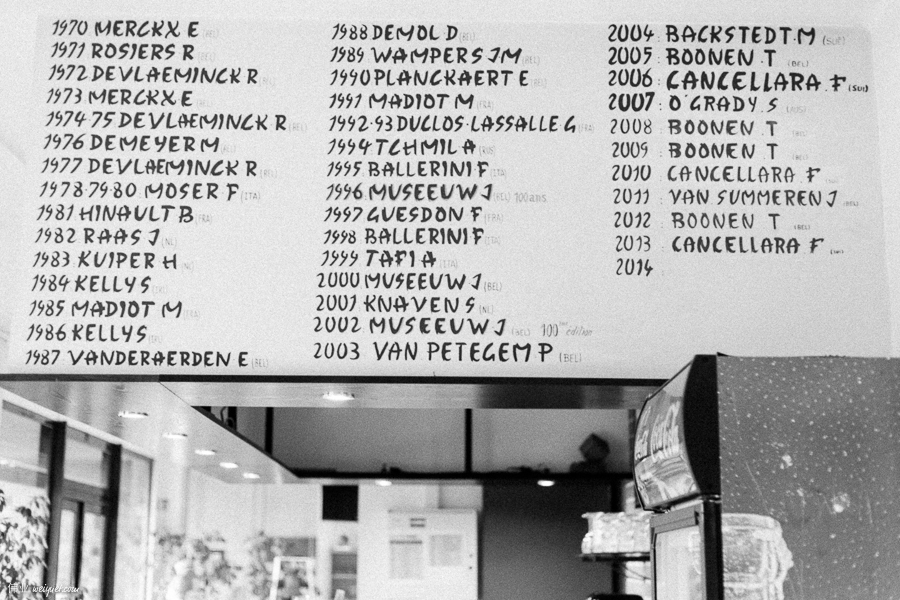 1970 MERCKX E (BEL)
1971 ROSIERS R (BEL)
1972 DEVLAEMINCK R (BEL)
1973 MERCKX E (BEL)
1974·75 DEVLAEMINCK R (BEL)
1976 DEMEYER M (BEL)
1977 DEVLAEMINCK R (BEL)
1978·79·80 MOSER F (ITA)
1981 HINAULT B (FRA)
1982 RAAS J (NL)
1983 KUIPER H (NL)
1984 KELLY S
1985 MADIOT M (FRA)
1986 KELLY S
1987 VANDERAERDEN E (BEL)
1988 DEMOL D (BEL)
1989 WAMPERS JM (BEL)
1990 PLANCKAERT E (BEL)
1991 MADIOT M (FRA)
1992·93 DUCLOS·LASSALLE G (FRA)
1994 TCHMIL A (RUS)
1995 BALLERINI F (ITA)
1996 MUSEEUW J (BEL) 100ans
1997 GUESDON F (FRA)
1998 BALLERINI F (ITA)
1999 TAFI A (ITA)
2000 MUSEEUW J (BEL)
2001 KNAVEN S (NL)
2002 MUSEEUW J (BEL) 100 edition
2003 VAN PETEGEM P (BEL)
2004 : BACKSTEDT·M (SUE)
2005 : BOONEN T (BEL)
2006 : CANCELLARA F (SUI)
2007 : O'GRADY S (AUS)
2008 : BOONEN T (BEL)
2009 : BOONEN T (BEL)
2010 : CANCELLARA F
2011 : VAN SUMMEREN J (BEL)
2012 : BOONEN T (BEL)
2013 : CANCELLARA F (SUI)
2014 :
Coca-Cola
weiyuer.com